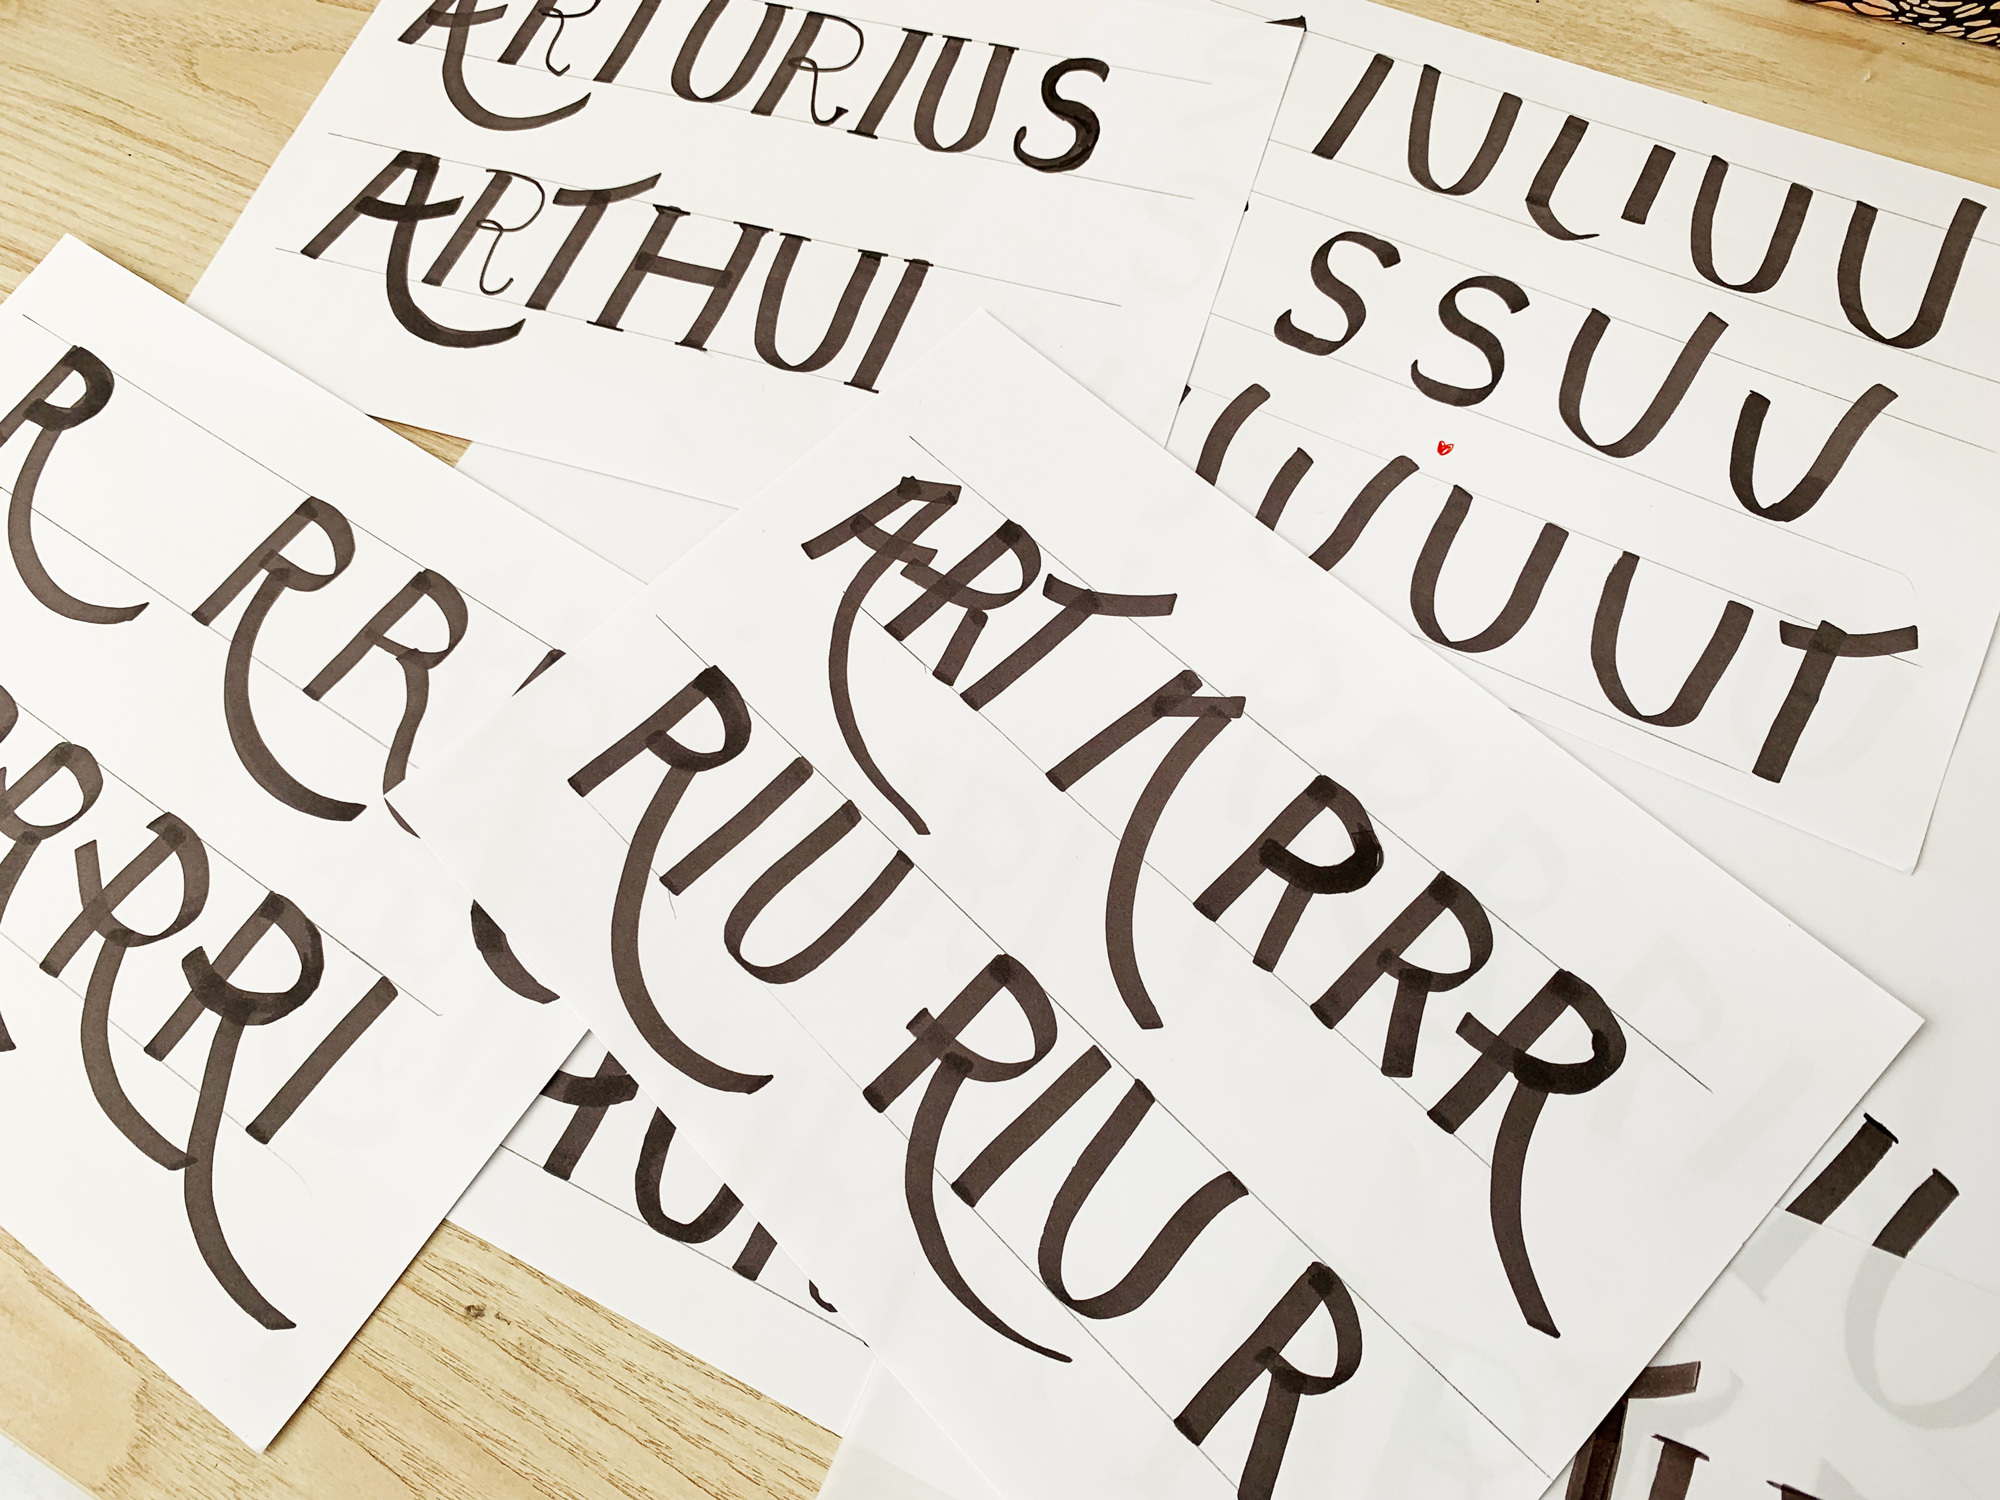 ARTURIUS
ARTHUI
IULIUU
SSUU
UUUT
R RR
RRRI
ART
RRR
RIU RIU R